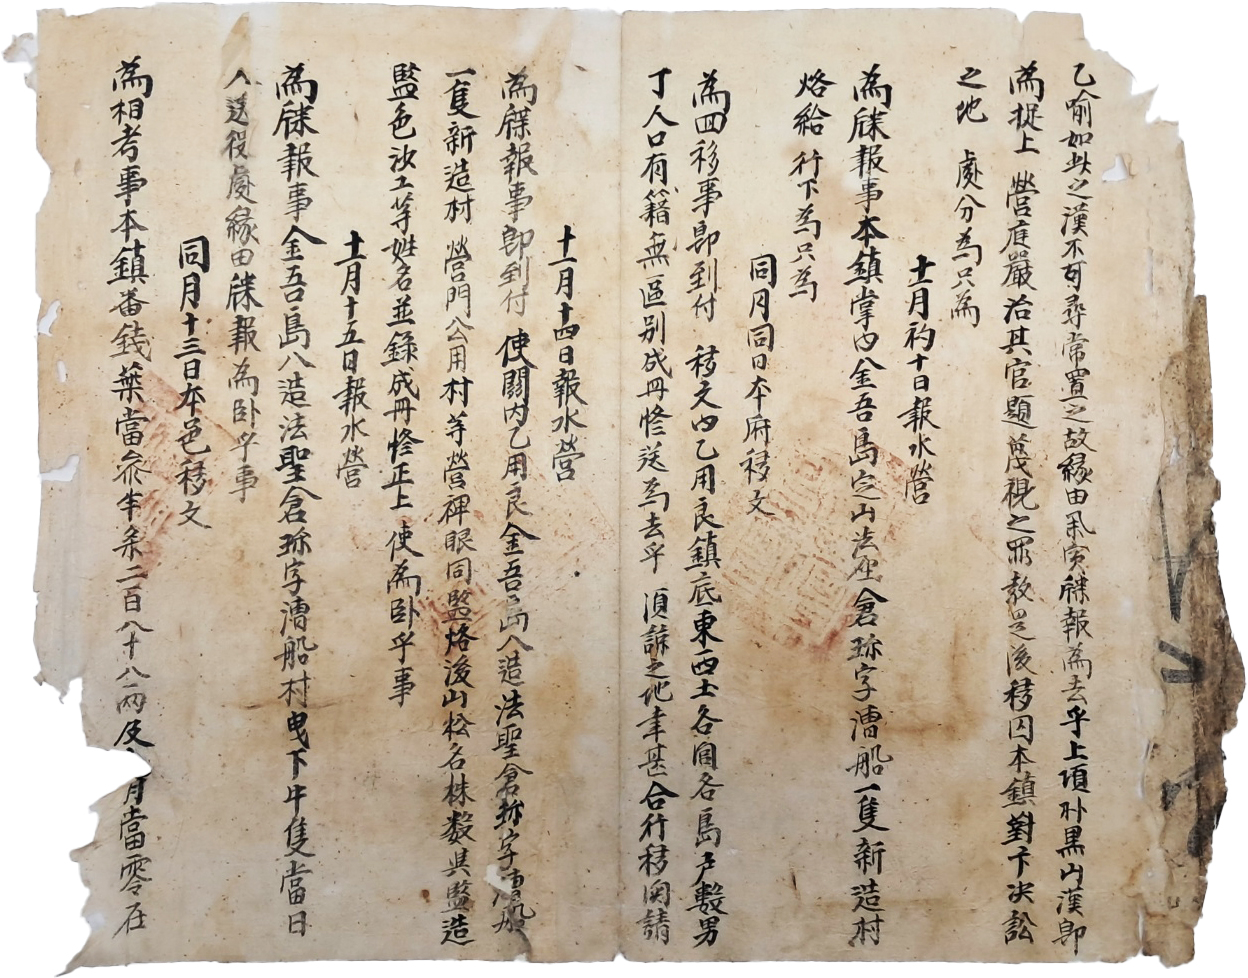 乙喩如此之漢不可尋常置之故緣由枚實牒報爲去乎上項朴黑山漢卽
爲捉上 營庭嚴治其官題蔑視之罪敎是後移囚本鎭對卞決訟
之地 處分爲只爲
十一月初十日報水營
爲牒報事本鎭掌內金吾島定山法聖倉珎字漕船一隻新造材
烙給 行下爲只爲
同月同日本府移文
爲回移事卽到付 移文內乙用良鎭底東西士各面各島戶數男
丁人口有籍無區別成冊修送爲去乎 湏諒之地幸甚合行移関請
十一月十四日報水營
爲牒報事卽到付 使關內乙用良金吾島入造法聖倉珎字漕船
一隻新造材 營門公用材等營裨眼同監烙後山松名株數與監造
監色沙工等姓名並錄成冊修正上 使爲卧乎事
十一月十五日報水營
爲牒報事金吾島入造法聖倉珎字漕船材曳下牛隻當日
入送役處緣由牒報爲卧乎事
同月十三日本邑移文
爲相考事本鎭番錢葉當叅半条二百八十八兩及 月當零在